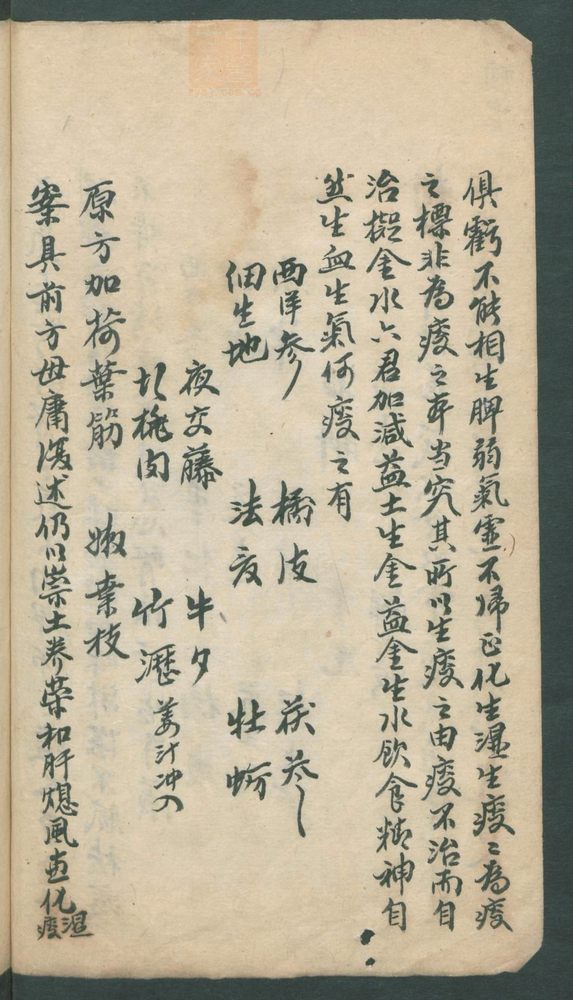 俱虧不能相生脾弱氣虛不歸正化生濕生痰〻為痰
之標非為痰之本当究其所以生痰之由痰不治而自
治擬金水六君加減益土生金益金生水飲食精神自
然生血生氣何痰之有
西洋参 橘皮 茯苓
佃生地 法夏 牡蛎
夜交藤 牛夕
胡桃肉 竹瀝 姜汁冲入
原方加荷葉筋 嫩桑枝
案具前方毋庸復述仍以崇土养荣和肝熄風直化濕痰